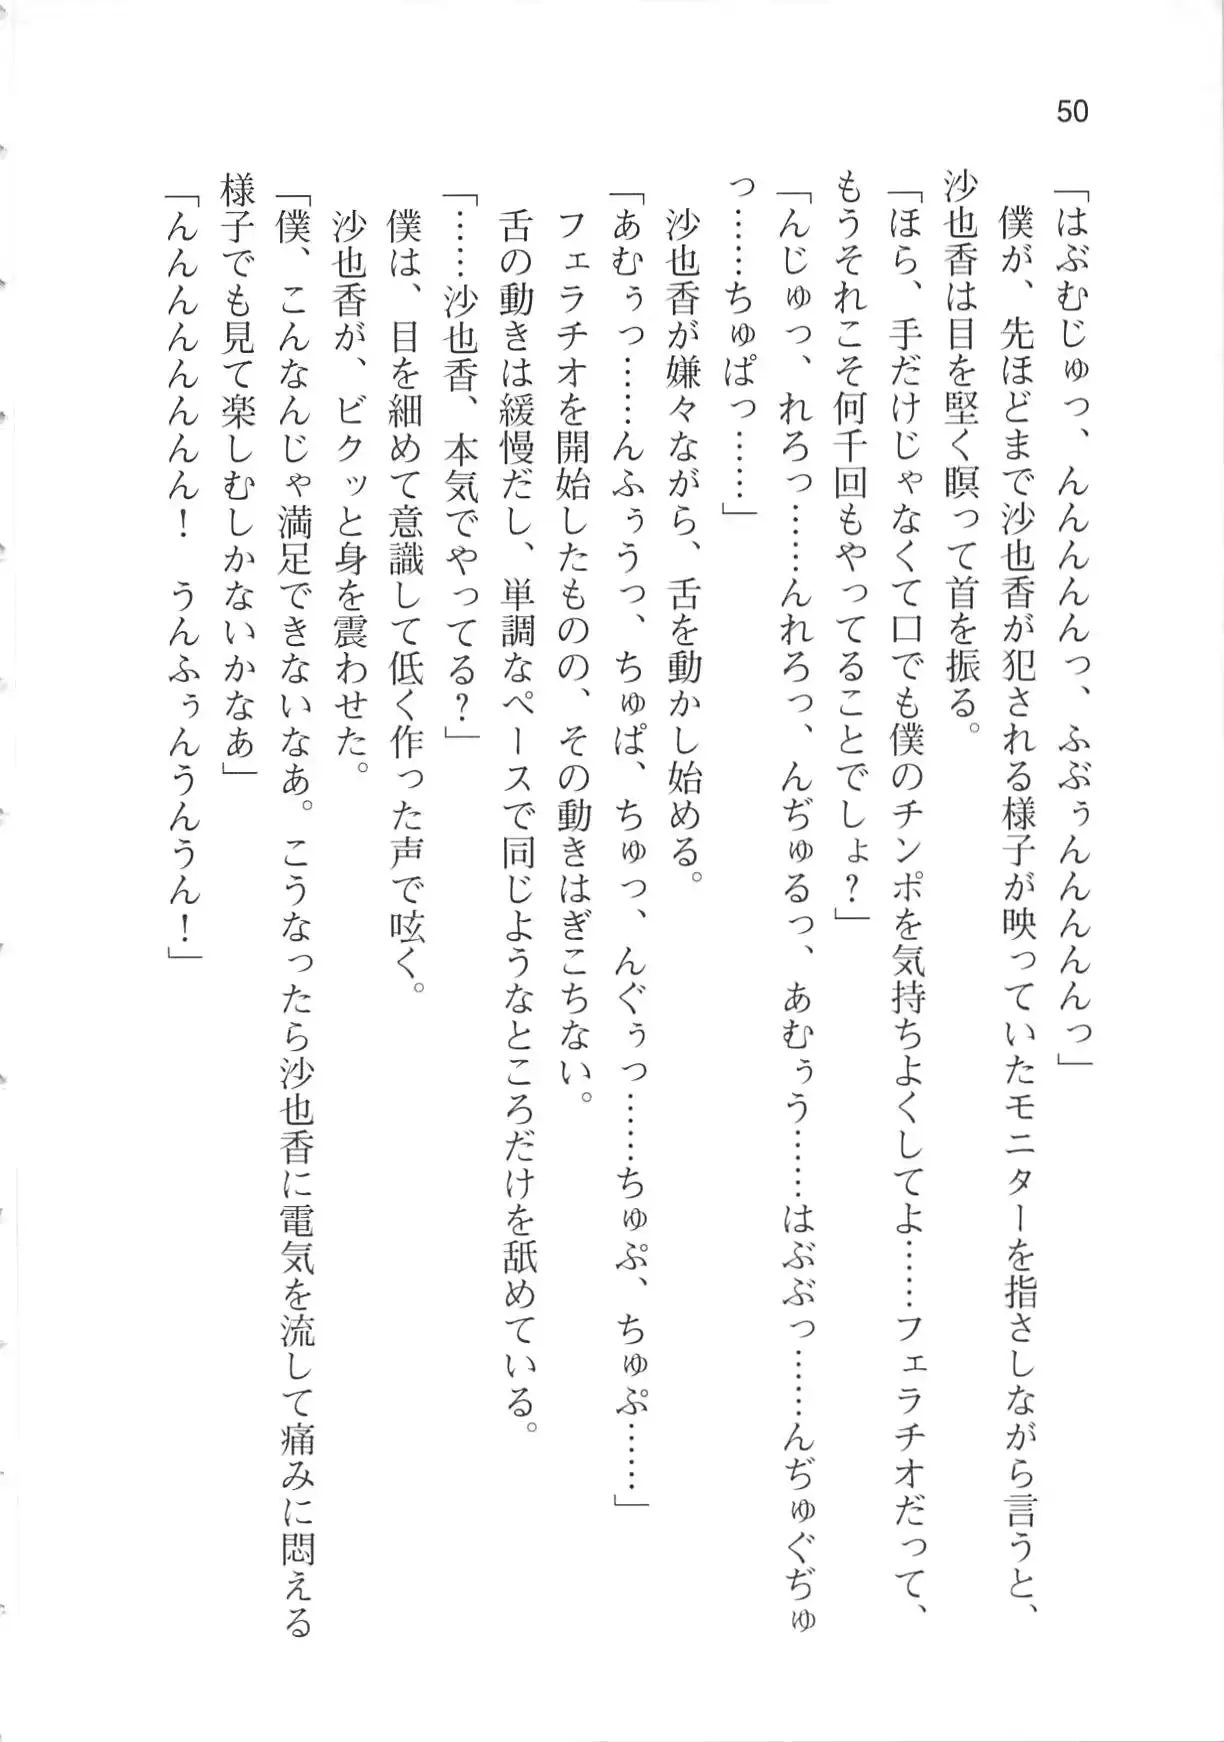 50
「はぶむじゅっ、んんんんんっ、ふぶぅんんんんんっ」
僕が、先ほどまで沙也香が犯される様子が映っていたモニターを指さしながら言うと、
沙也香は目を堅く瞑って首を振る。
「ほら、手だけじゃなくて口でも僕のチンポを気持ちよくしてよ……フェラチオだって、
もうそれこそ何千回もやってることでしょ？」
「んじゅっ、れろっ……んれろっ、んぢゅるっ、あむぅう……はぶぶっ……んぢゅぐぢゅ
っ……ちゅぱっ……」
沙也香が嫌々ながら、舌を動かし始める。
「あむぅっ……んふぅうっ、ちゅぱ、ちゅっ、んぐぅっ……ちゅぷ、ちゅぷ……」
フェラチオを開始したものの、その動きはぎこちない。
舌の動きは緩慢だし、単調なペースで同じようなところだけを舐めている。
「……沙也香、本気でやってる？」
僕は、目を細めて意識して低く作った声で呟く。
沙也香が、ビクッと身を震わせた。
「僕、こんなんじゃ満足できないなぁ。こうなったら沙也香に電気を流して痛みに悶える
様子でも見て楽しむしかないかなぁ」
「んんんんんんんん！　うんふぅんうんうん！」